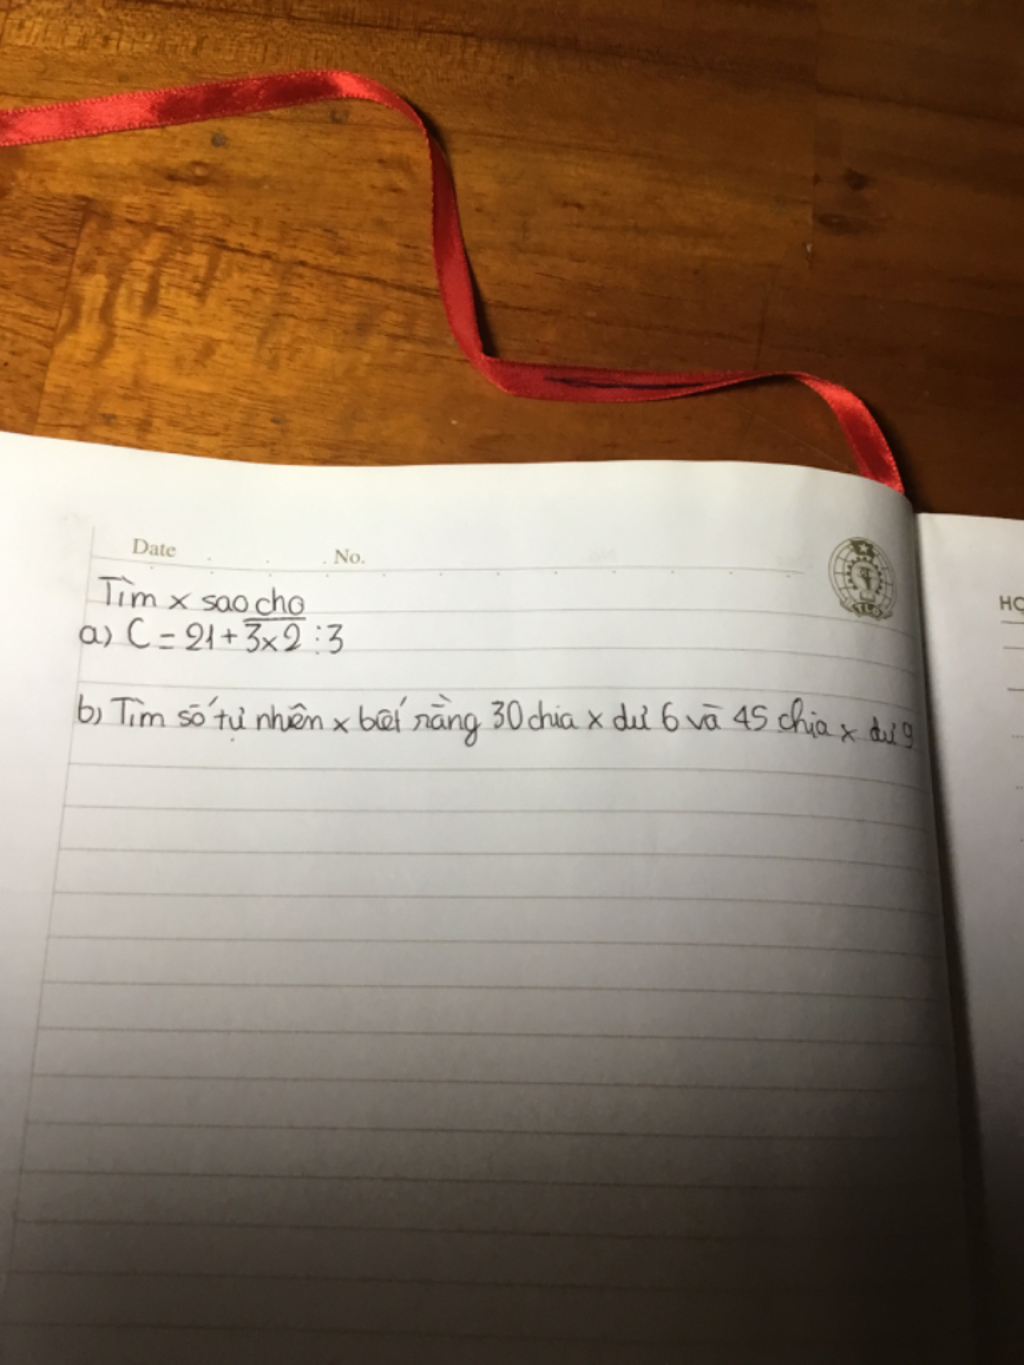 Date No.
Tìm x sao cho
a) C = 21 + 3x2 ⋮ 3
b) Tìm số tự nhiên x biết rằng 30 chia x dư 6 và 45 chia x dư 9
HỌ